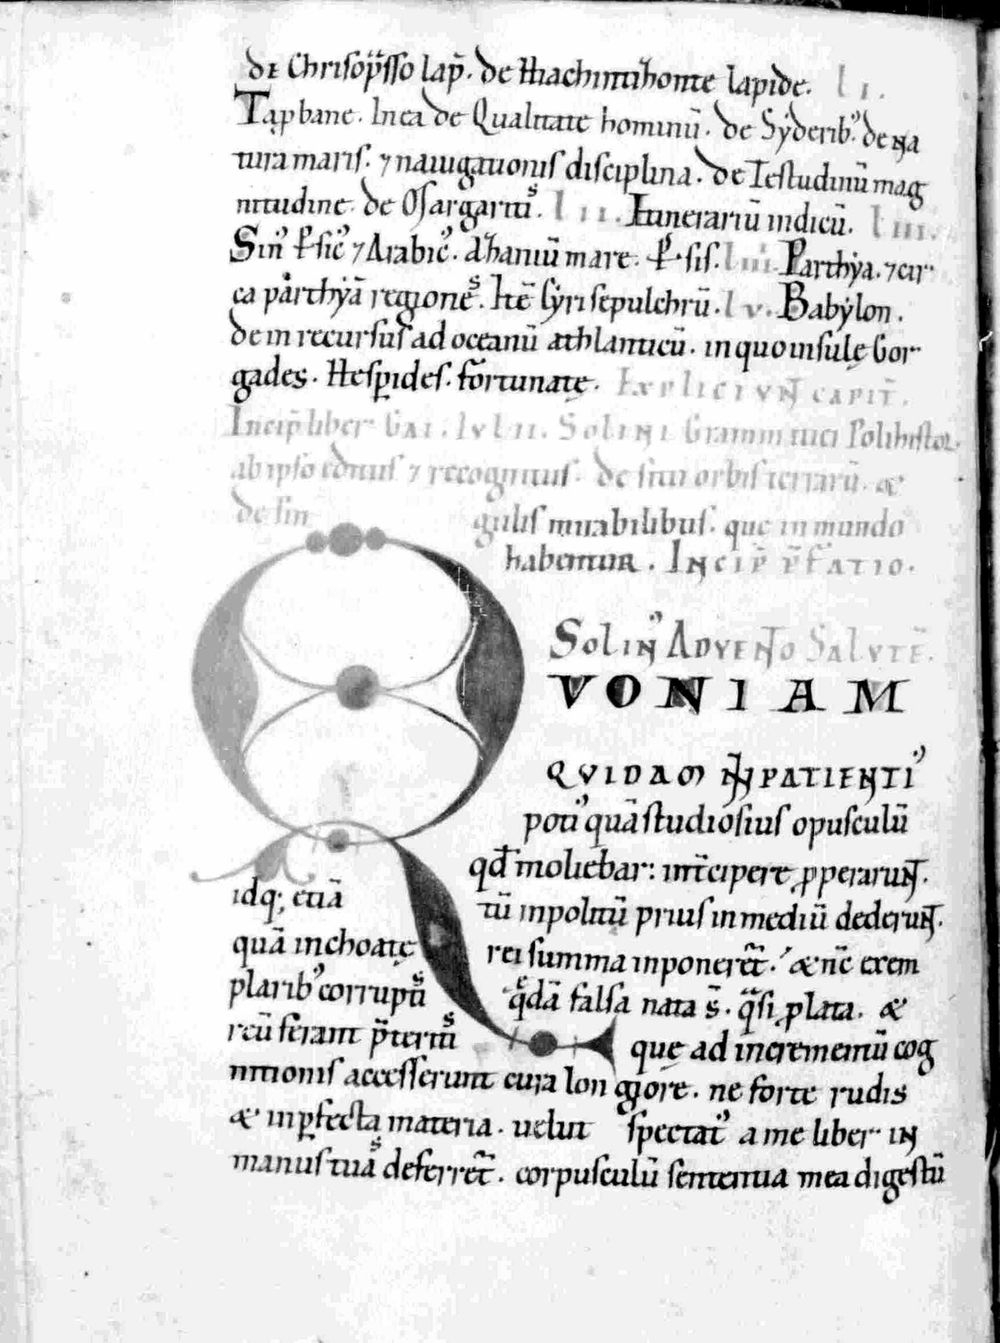 de Chrisop̄sso lap̄. de Hiachintiʒhonte lapide. l i.
Tapbane. Inea de Qualitate hominū. de Syderibꝰ. de na
tura maris. ⁊ nauigationis disciplina. de Testudinū mag
nitudine. de Osargaritiˢ. l i i. Itinerariū indicū. l iii.
Sinꝰ ꝑsicꝰ ⁊ Arabicꝰ. Ahaniū mare. ꝑsis. l iiii. Parthya. ⁊ cir
ca parthyā regioneˢ. Itē syri sepulchrū. l v. Babylon.
de in recursus ad oceanū athlanticū. in quo insulę Gor
gades. Hesperides. fortunatę. Expliciunt capit̄.
Incip̄ liber Gai. Iulii. Solini Grammatici Polihistor.
ab ipso editus ⁊ recognitus. de situ orbis terrarū. &
de sin
gulis mirabilibus. que in mundo
habentur. Incip̄ p̄fatio.
Solinꝰ Adventо Salutē.
VONIAM
QVIDAM INPATIENTIꝰ
potiꝰ quā studiosius opusculū
qđ moliebar: int̄cipere ꝓperarunt.
idq; etiā
tū inpolitū prius in mediū dederunt.
quā inchoatę
rei summa inponeret̄. & nc̄ exem
plaribꝰ corruptiˢ
q̄dā falsa nata s̄. q̄si ꝓlata. &
reū ferant p̄termˢ
quę ad incrementū cog
nitionis accesserunt cura longiore. ne forte rudis
& inꝑfecta materia. uelut spectatꝰ a me liber in
manus tuaˢ deferret̄. corpusculū sententia mea digestū